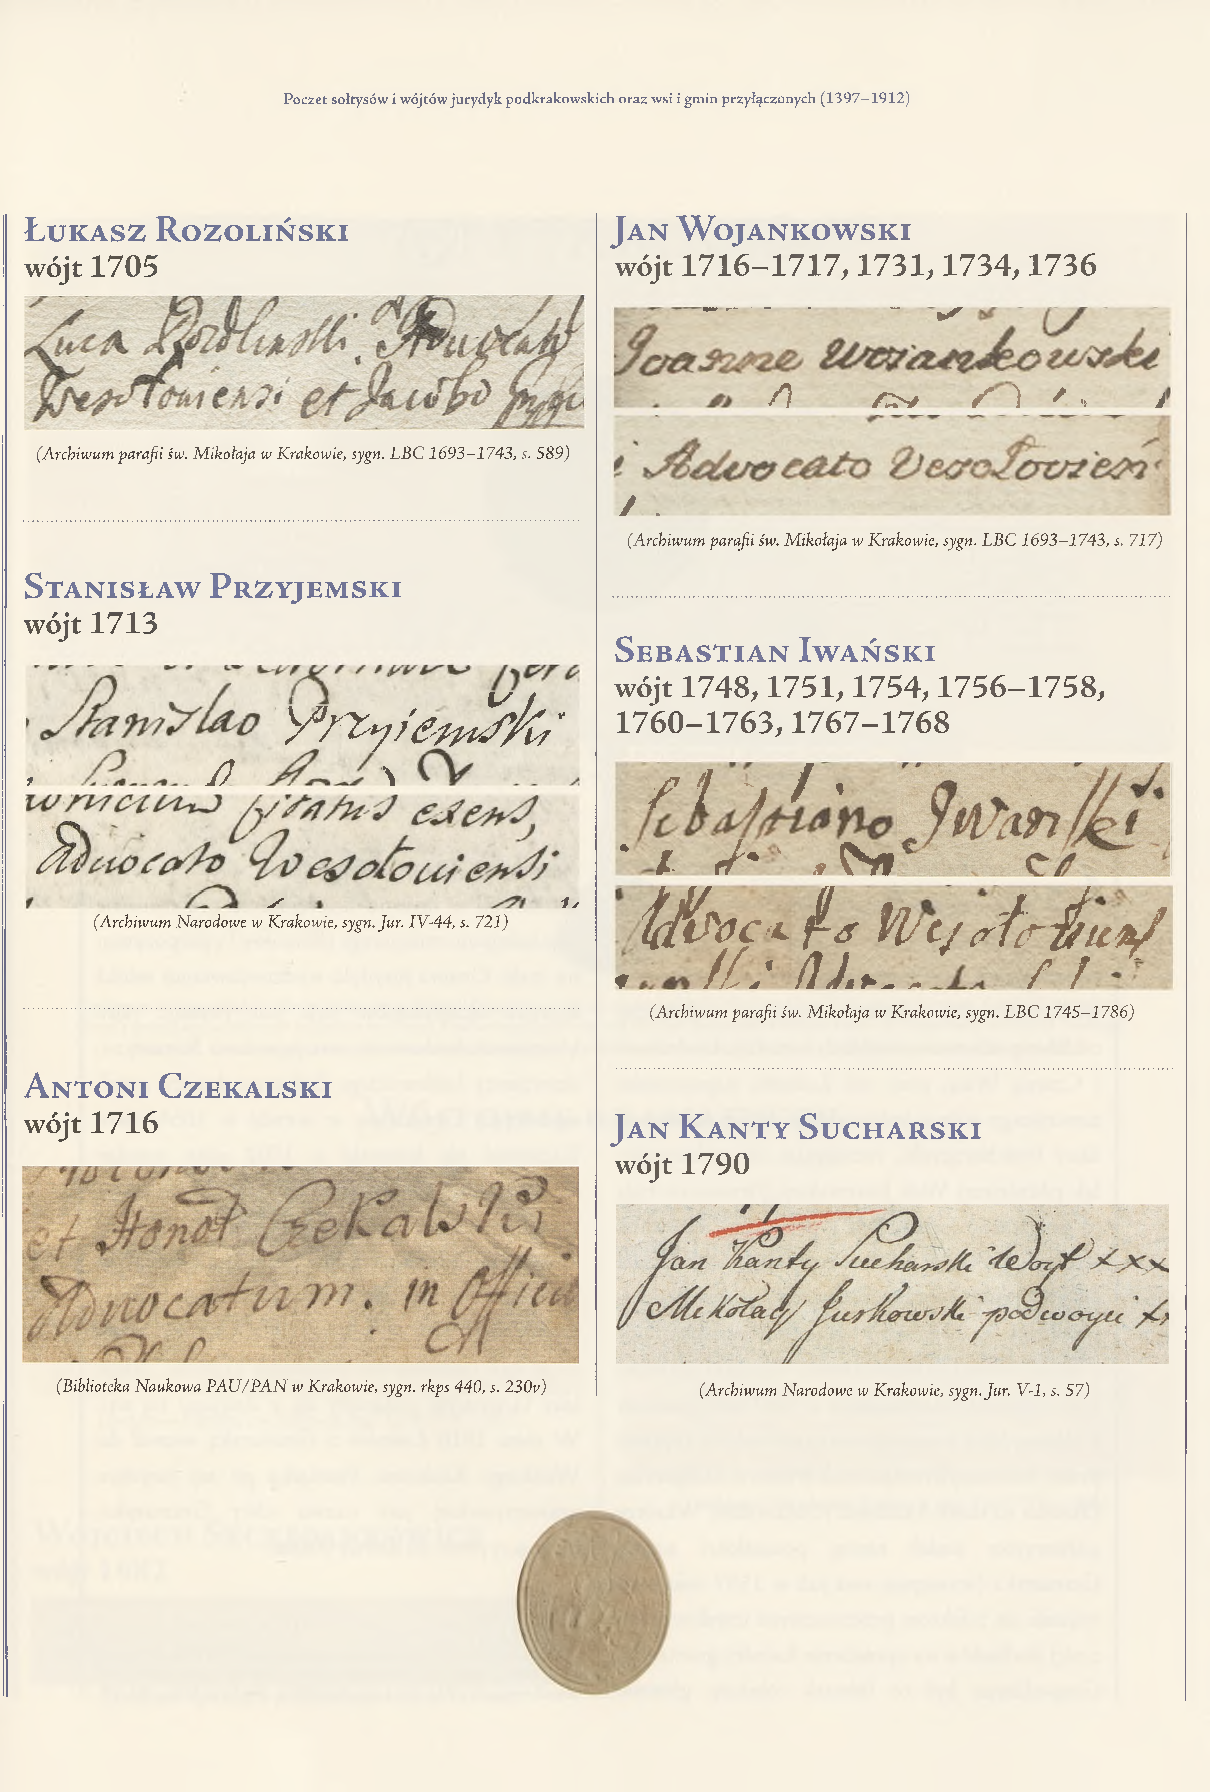 Poczet sołtysów i wójtów jurydyk podkrakowskich oraz wsi i gmin przyłączonych (1397–1912)
Łukasz Rozoliński
wójt 1705
Luca Advocato
Wesołoviensi et Jacobo
(Archiwum parafii św. Mikołaja w Krakowie, sygn. LBC 1693–1743, s. 589)
Stanisław Przyjemski
wójt 1713
Stanislao Przyiemski
exens,
Advocato Wesołouiensi
(Archiwum Narodowe w Krakowie, sygn. Jur. IV-44, s. 721)
Antoni Czekalski
wójt 1716
et Honor Czekalski
Advocatum. in Officio
(Biblioteka Naukowa PAU/PAN w Krakowie, sygn. rkps 440, s. 230v)
Jan Wojankowski
wójt 1716–1717, 1731, 1734, 1736
Joanne Woiankowski
Advocato Vesołovień
(Archiwum parafii św. Mikołaja w Krakowie, sygn. LBC 1693–1743, s. 717)
Sebastian Iwański
wójt 1748, 1751, 1754, 1756–1758,
1760–1763, 1767–1768
Sebastiano Iwanski
Advocato
(Archiwum parafii św. Mikołaja w Krakowie, sygn. LBC 1745–1786)
Jan Kanty Sucharski
wójt 1790
Jan Kanty Sucharski Woyt xxx
Mikołay Gurkowski podwoyci
(Archiwum Narodowe w Krakowie, sygn. Jur. V-1, s. 57)